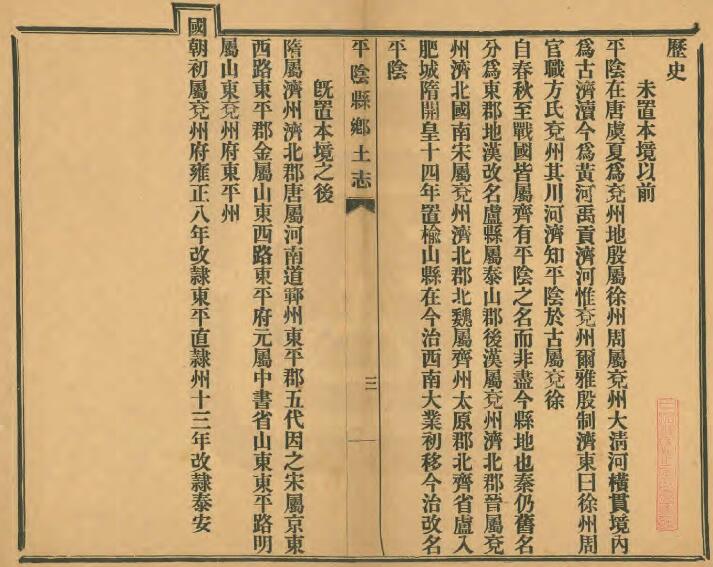 歷史
未置本境以前
平陰在唐虞夏爲兗州地殷屬徐州周屬兗州大淸河橫貫境內
爲古濟瀆今爲黃河禹貢濟河惟兗州爾雅殷制濟東曰徐州周
官職方氏兗州其川河濟知平陰於古屬兗徐
自春秋至戰國皆屬齊有平陰之名而非盡今縣地也秦仍舊名
分爲東郡地漢改名盧縣屬泰山郡後漢屬兗州濟北郡晉屬兗
州濟北國南宋屬兗州濟北郡北魏屬齊州太原郡北齊省盧入
肥城隋開皇十四年置楡山縣在今治西南大業初移今治改名
平陰
平陰縣鄉土志
三
旣置本境之後
隋屬濟州濟北郡唐屬河南道鄆州東平郡五代因之宋屬京東
西路東平郡金屬山東西路東平府元屬中書省山東東平路明
屬山東兗州府東平州
國朝初屬兗州府雍正八年改隸東平直隸州十三年改隸泰安